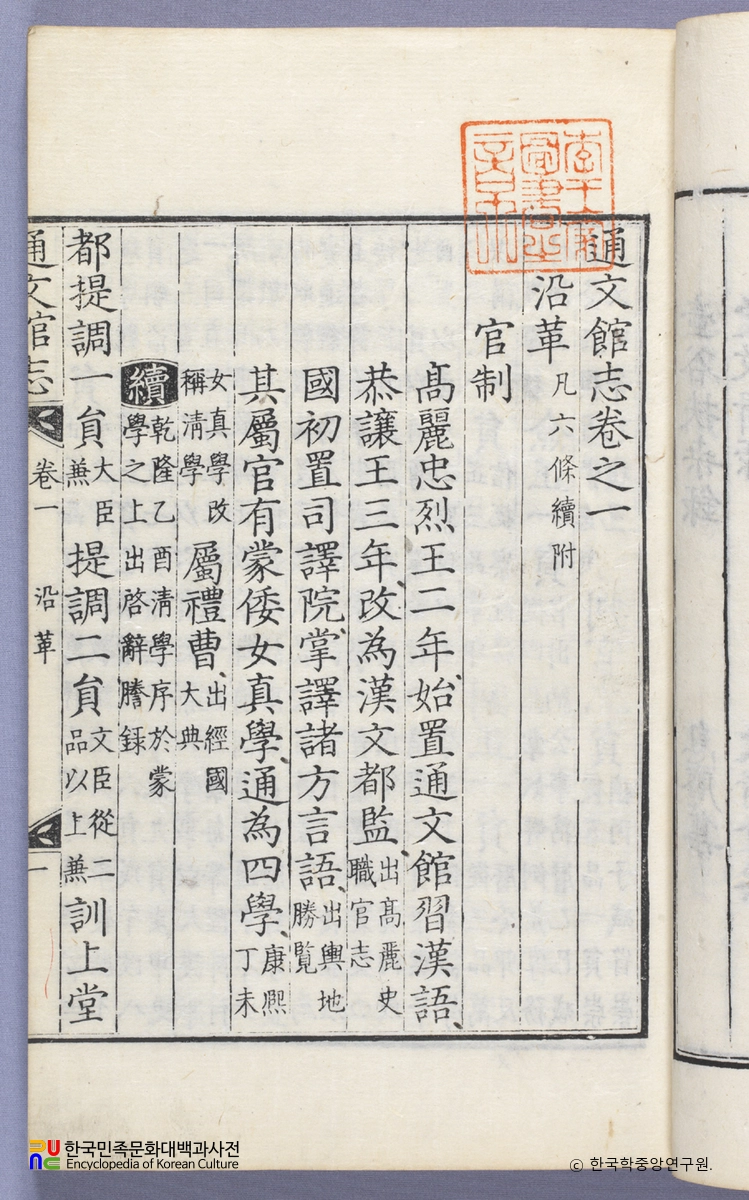 通文館志卷之一
沿革凡六條續附
官制
高麗忠烈王二年始置通文館習漢語
恭讓王三年改為漢文都監出高麗史職官志
國初置司譯院掌譯諸方言語出輿地勝覽
其屬官有蒙倭女真學通為四學康熙丁未
女真學改稱清學屬禮曹出經國大典
續乾隆乙酉清學序於蒙學之上出啓辭謄錄
都提調一員大臣兼提調二員文臣從二品以上兼訓上堂
通文館志 卷一 沿革 一
李王家圖書之章
한국민족문화대백과사전
Encyclopedia of Korean Culture
© 한국학중앙연구원.